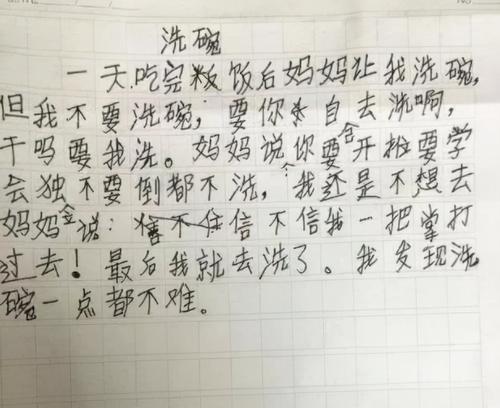 洗碗
一天吃完飯饭后妈妈让我洗碗,
但我不要洗碗,要你自去洗啊,
干吗要我洗。妈妈说你要会开推要学
会独不要倒都不洗,我还是不想去
妈妈说:信不信我一把掌打
过去!最后我就去洗了。我发现洗
碗一点都不难。